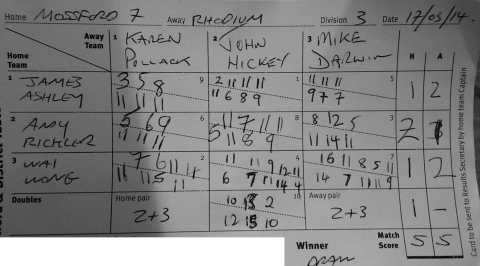 Home MOSSFORD 7 Away RHODIUM Division 3 Date 17/03/14.
Away Team 1 KAREN POLLACK 2 JOHN HICKEY 3 MIKE DARWIN H A
Home Team
1 JAMES ASHLEY
3 5 8 9
11 11 11
2 11 11 11 1
11 6 8 9
11 11 11 5
9 7 7
1 2
2 ANDY RICHLER
5 6 9 6
11 11 11
11 7 11 11 8
5 11 8 9
8 12 5 3
11 14 11
2 1
3 WAI WONG
7 6 11 11 2
11 11 5 11
11 11 9 12 11 4
6 7 11 14 4
16 11 8 5 11 7
14 7 11 11 9
1 2
Doubles
Home pair
2+3
10 13 2 10
12 15 10
Away pair
2+3
1 -
Winner DRAW
Match Score 5 5
Card to be sent to Results Secretary by home team Captain